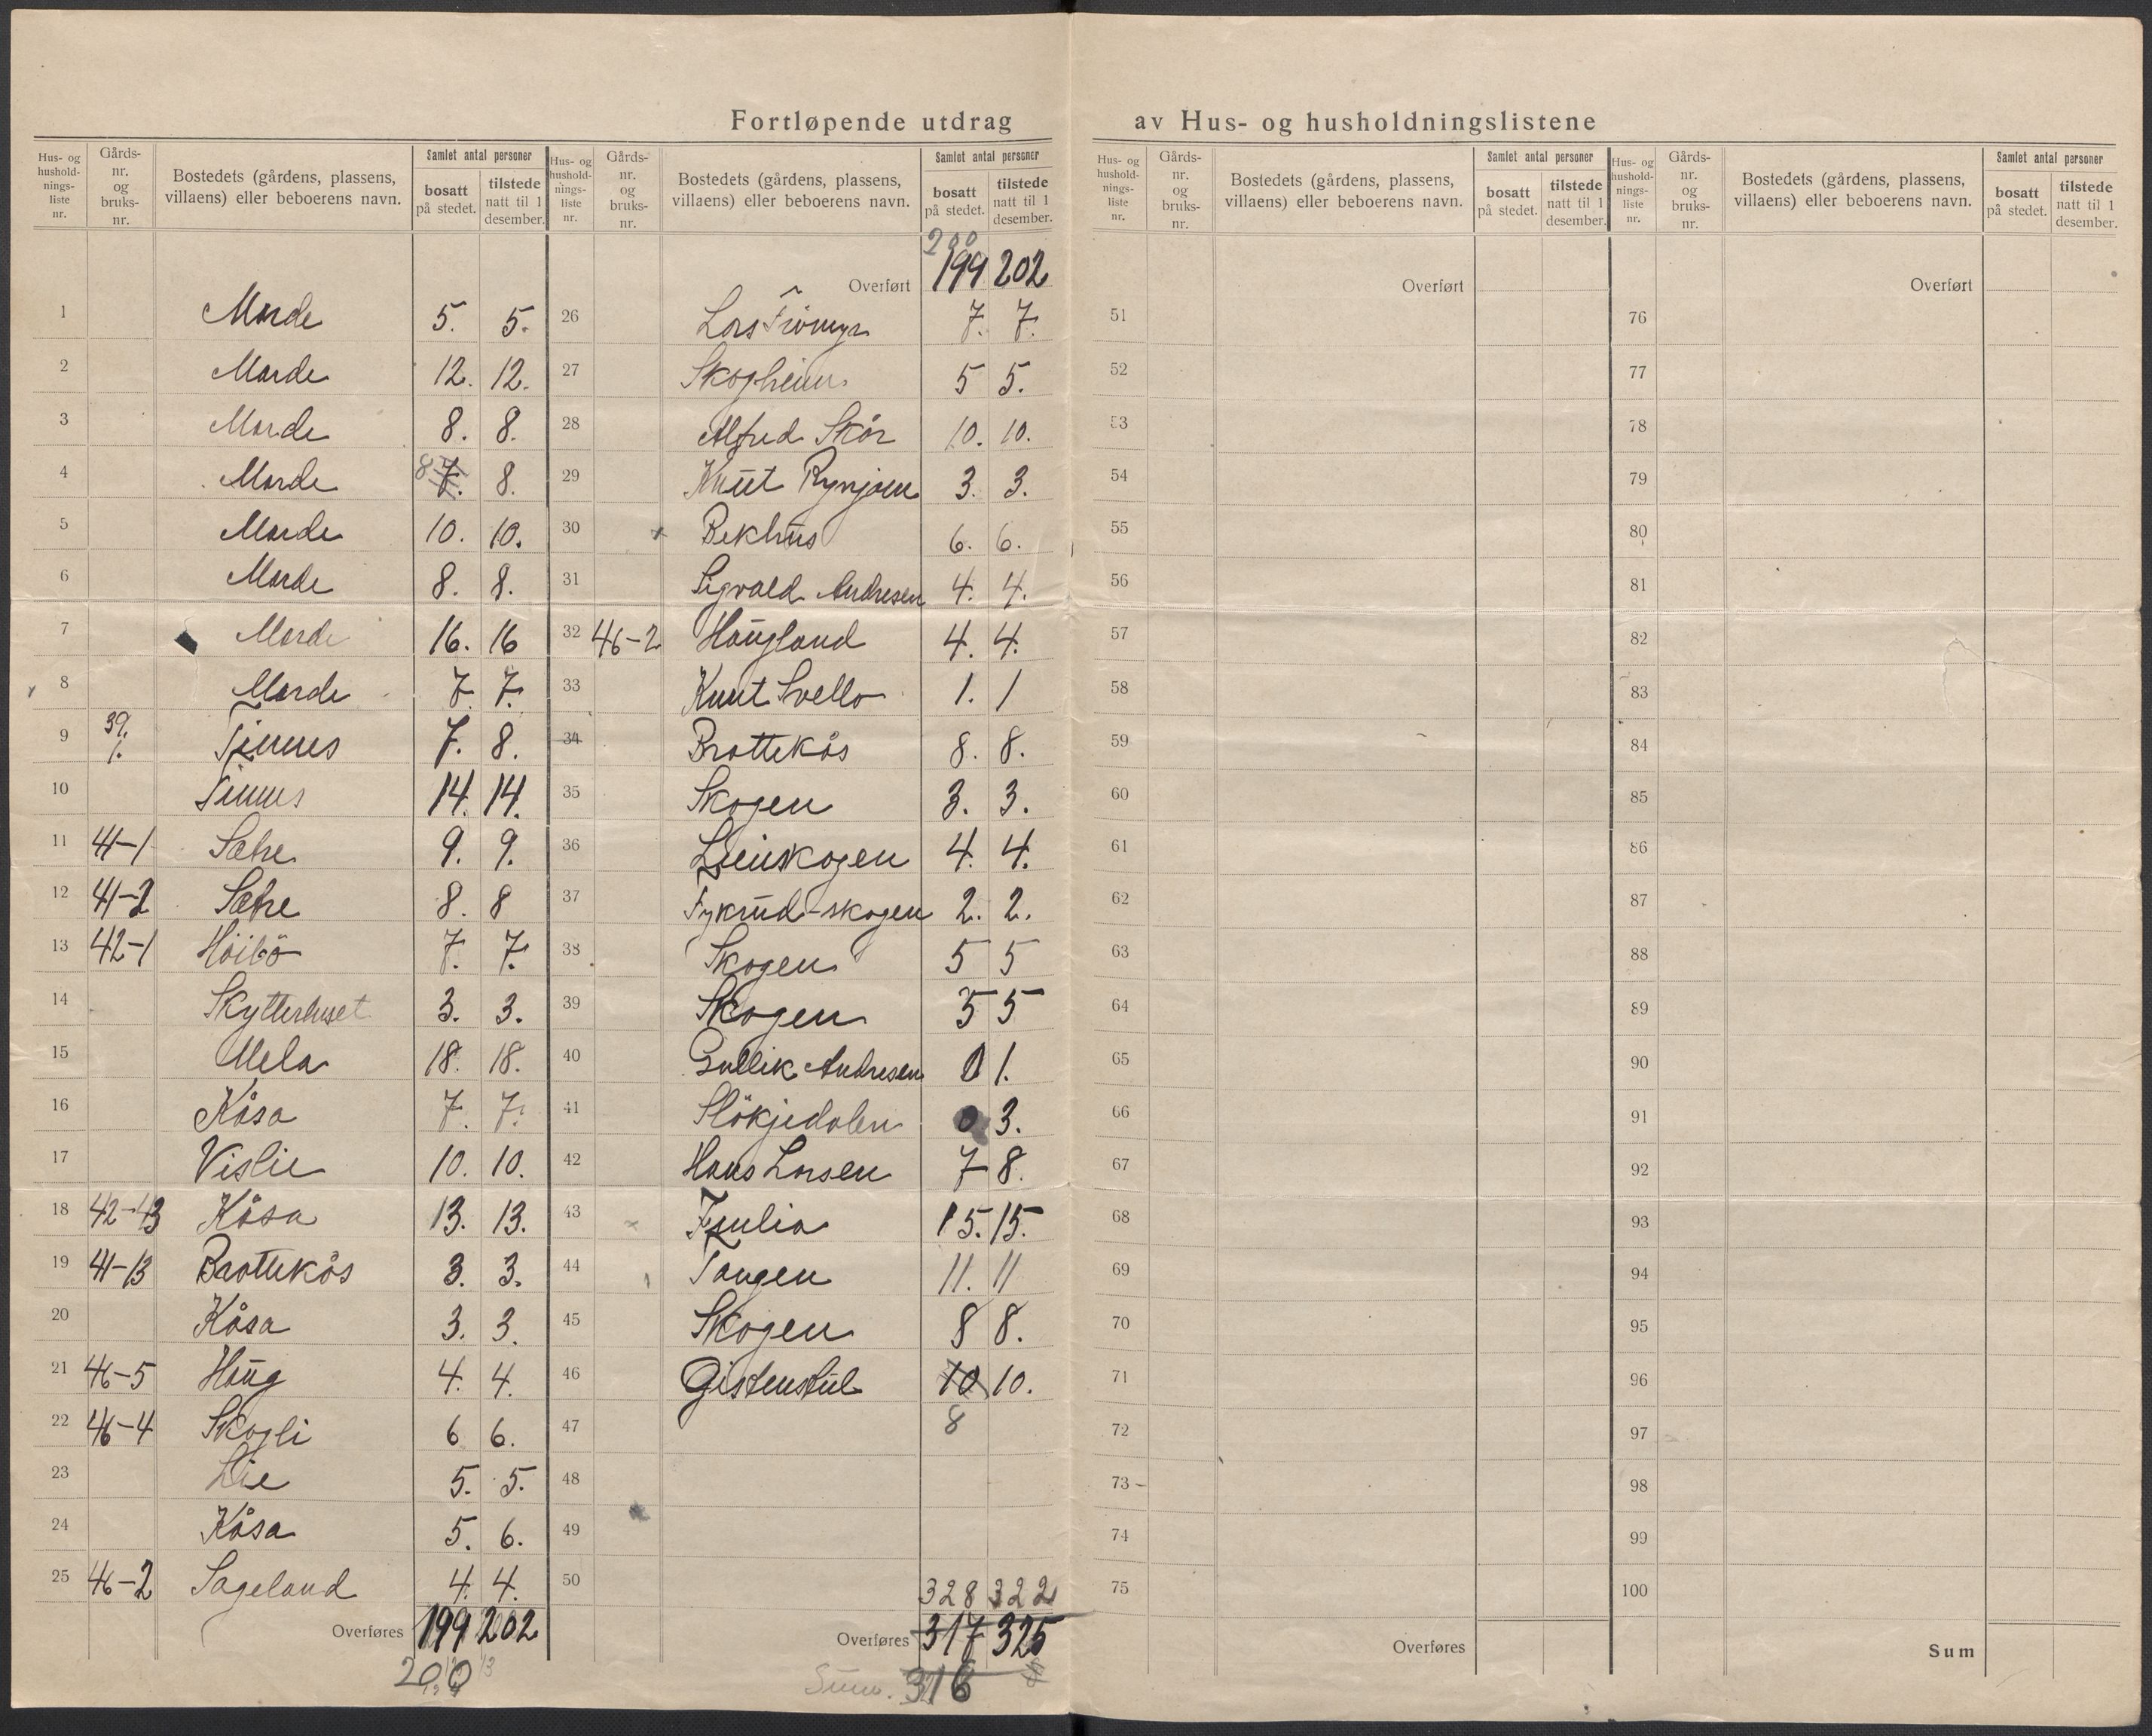 Fortløpende utdrag av Hus- og husholdningslistene
Hus- og hushold-nings-liste nr. | Gårds-nr. og bruks-nr. | Bostedets (gårdens, plassens, villaens) eller beboerens navn. | Samlet antal personer | bosatt på stedet. | tilstede natt til 1 desember.
1 Marde 5. 5.
2 Marde 12. 12.
3 Marde 8. 8.
4 Marde 8 7. 8.
5 Marde 10. 10.
6 Marde 8. 8.
7 Marde 16. 16
8 Marde 7. 7.
9 39. 1. Tinnes 7. 8.
10 Tinnes 14. 14.
11 41-1 Sætre 9. 9.
12 41-2 Sætre 8. 8
13 42-1 Höibö 7. 7.
14 Skytterhuset 3. 3.
15 Mela 18. 18.
16 Kåsa 7. 7.
17 Vislie 10. 10.
18 42-43 Kåsa 13. 13.
19 41-13 Brottekås 3. 3.
20 Kåsa 3. 3.
21 46-5 Haug 4. 4.
22 46-4 Skogli 6 6.
23 Lie 5. 5.
24 Kåsa 5. 6.
25 46-2 Sageland 4. 4.
Overføres 199 202
200
Hus- og hushold-nings-liste nr. | Gårds-nr. og bruks-nr. | Bostedets (gårdens, plassens, villaens) eller beboerens navn. | Samlet antal personer | bosatt på stedet. | tilstede natt til 1 desember.
200
Overført 199 202
26 Lars 7. 7.
27 Skogheim 5 5.
28 Alfred Skår 10. 10.
29 Knut Rynjom 3. 3.
30 Bekhus 6. 6.
31 Sigvald Andresen 4. 4.
32 46-2 Haugland 4. 4.
33 Knut Svello 1. 1
34 Brottekås 8. 8.
35 Skogen 3. 3.
36 Lienskogen 4. 4.
37 Fykrud-skogen 2. 2.
38 Skogen 5 5
39 Skogen 5 5
40 Gullik Andresen 1.
41 Slökjedalen 0 3.
42 Hans Larsen 7 8.
43 Frulia 15. 15.
44 Tangen 11. 11
45 Skogen 8 8.
46 Gistenstul 10 10.
47 8
48
49
50
328 322
Overføres 317 325
Sum. 316
Hus- og hushold-nings-liste nr. | Gårds-nr. og bruks-nr. | Bostedets (gårdens, plassens, villaens) eller beboerens navn. | Samlet antal personer | bosatt på stedet. | tilstede natt til 1 desember.
Overført
51
52
53
54
55
56
57
58
59
60
61
62
63
64
65
66
67
68
69
70
71
72
73
74
75
Overføres
Hus- og hushold-nings-liste nr. | Gårds-nr. og bruks-nr. | Bostedets (gårdens, plassens, villaens) eller beboerens navn. | Samlet antal personer | bosatt på stedet. | tilstede natt til 1 desember.
Overført
76
77
78
79
80
81
82
83
84
85
86
87
88
89
90
91
92
93
94
95
96
97
98
99
100
Sum